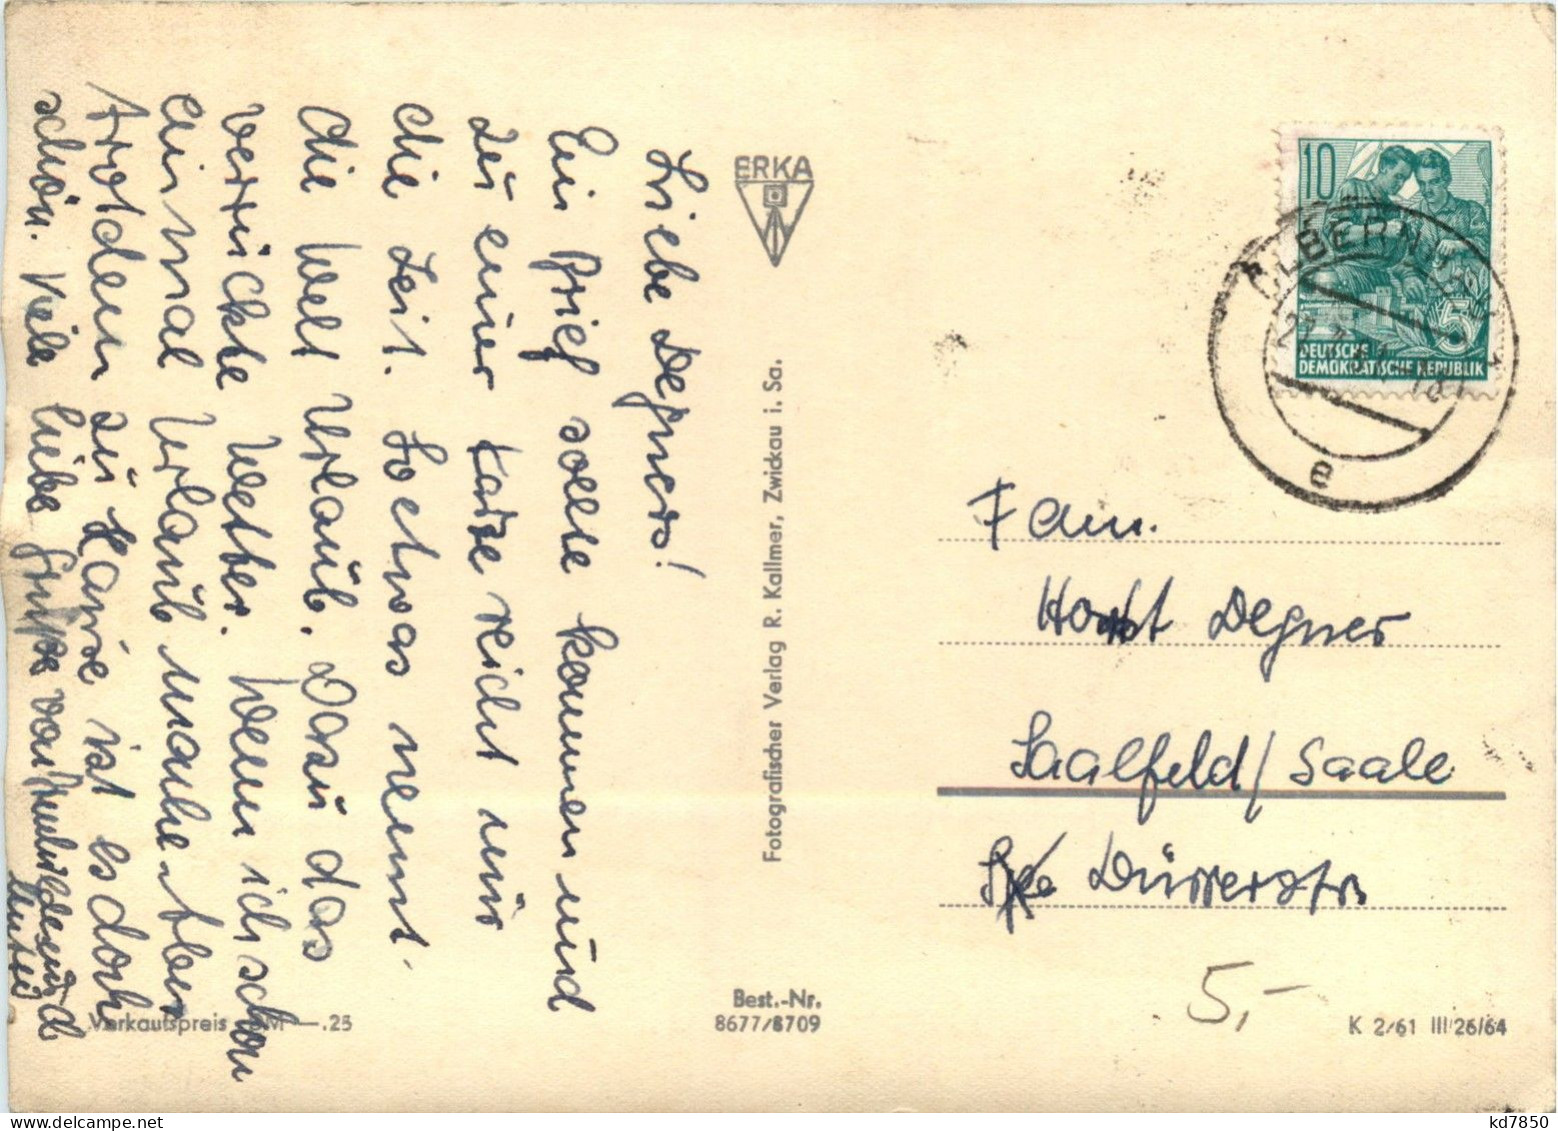 Liebe Degners!
Ein Brief sollte kommen und
zu einer Karte reicht nur
die Zeit. So etwas nennt
die Welt Urlaub. Dazu das
verrückte Wetter. Wenn ich schon
einmal Urlaub mache. Aber
trotzdem zu Hause ist es doch
schön. Viele liebe Grüße von
ERKA
Fotografischer Verlag R. Kallmer, Zwickau i. Sa.
Verkaufspreis DM —.25
Best.-Nr.
8677/8709
10
5
DEUTSCHE
DEMOKRATISCHE REPUBLIK
OLBERNHAU
e
Fam.
Horst Degner
Saalfeld/Saale
Dürrerstr
5,-
K 2/61 III/26/64
kd7850